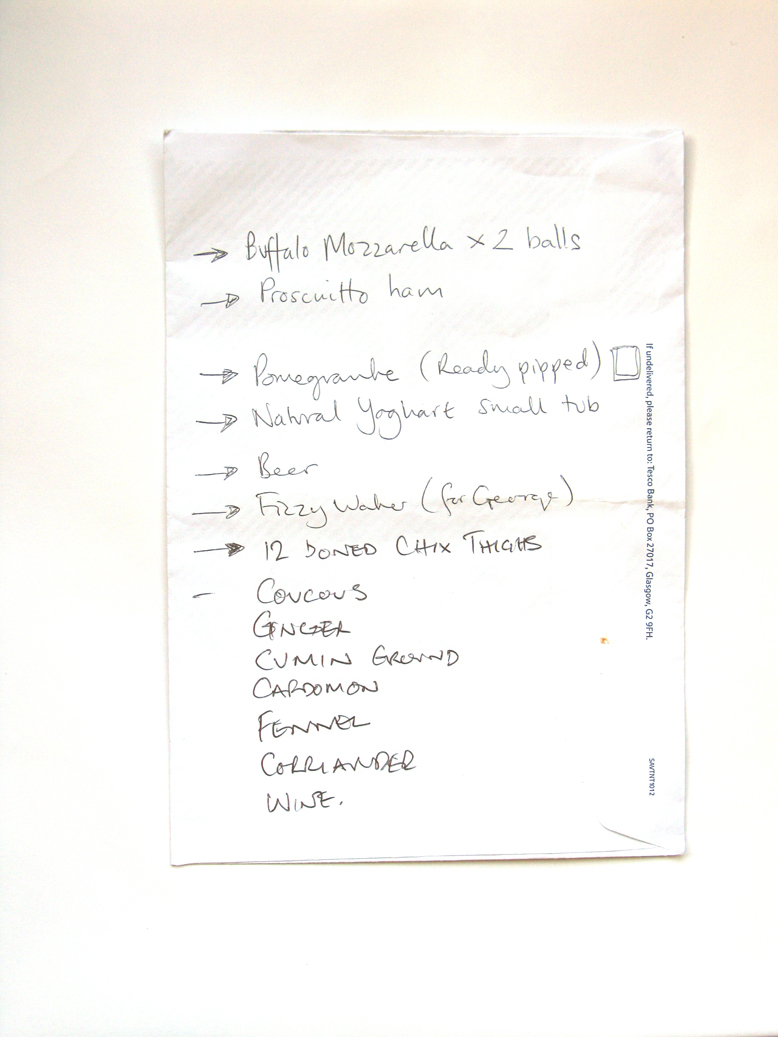 → Buffalo Mozzarella x 2 balls
→ Proscuitto ham
→ Pomegranite (Ready pipped)
→ Natural Yoghart small tub
→ Beer
→ Fizzy Water (for George)
→ 12 BONED CHIX THIGHS
– COUCOUS
GINGER
CUMIN GROUND
CARDOMON
FENNEL
CORRIANDER
WINE.
If undelivered, please return to: Tesco Bank, PO Box 27017, Glasgow, G2 9FH.
SAVTNT1012